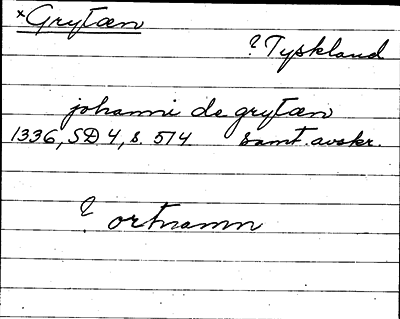 ×Grytæn
? Tyskland
johanni de grytæn
1336, SD 4, s. 514 samt. avskr.
? ortnamn